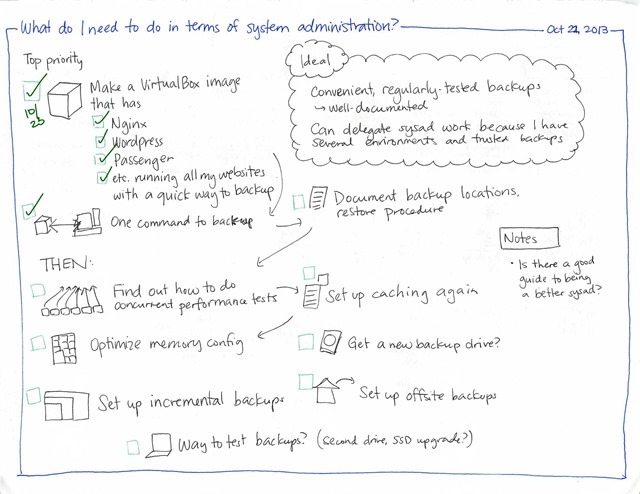 What do I need to do in terms of system administration?
Oct 22, 2013
Top priority
10/25
Make a VirtualBox image
that has
Nginx
Wordpress
Passenger
etc. running all my websites
with a quick way to backup
One command to backup
Ideal
Convenient, regularly-tested backups
↳ well-documented
Can delegate sysad work because I have
several environments and trusted backups
Document backup locations,
restore procedure
Notes
• Is there a good
guide to being
a better sysad?
THEN:
Find out how to do
concurrent performance tests
Set up caching again
Optimize memory config
Get a new backup drive?
Set up incremental backups
Set up offsite backups
Way to test backups? (second drive, SSD upgrade?)